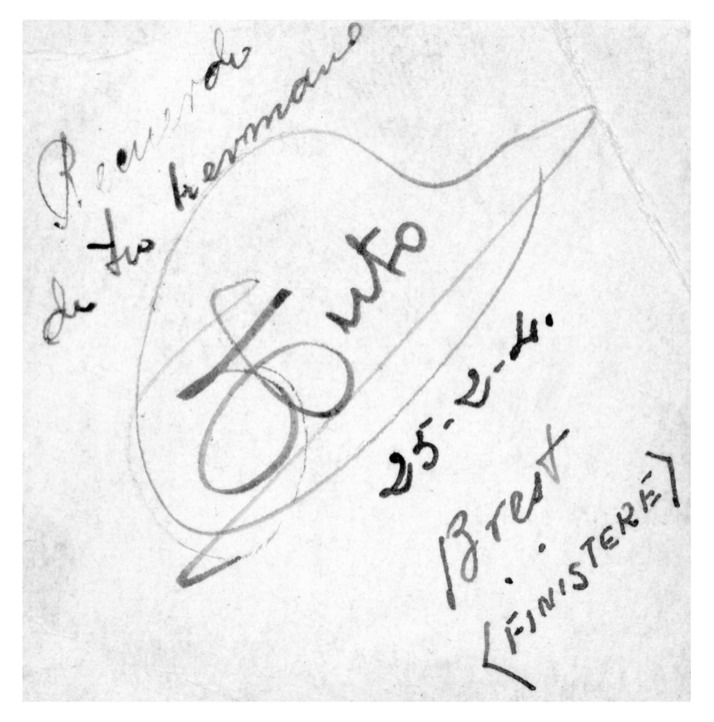 Recuerdo
de tu hermano
25-2-4.
Brest
(FINISTERE)